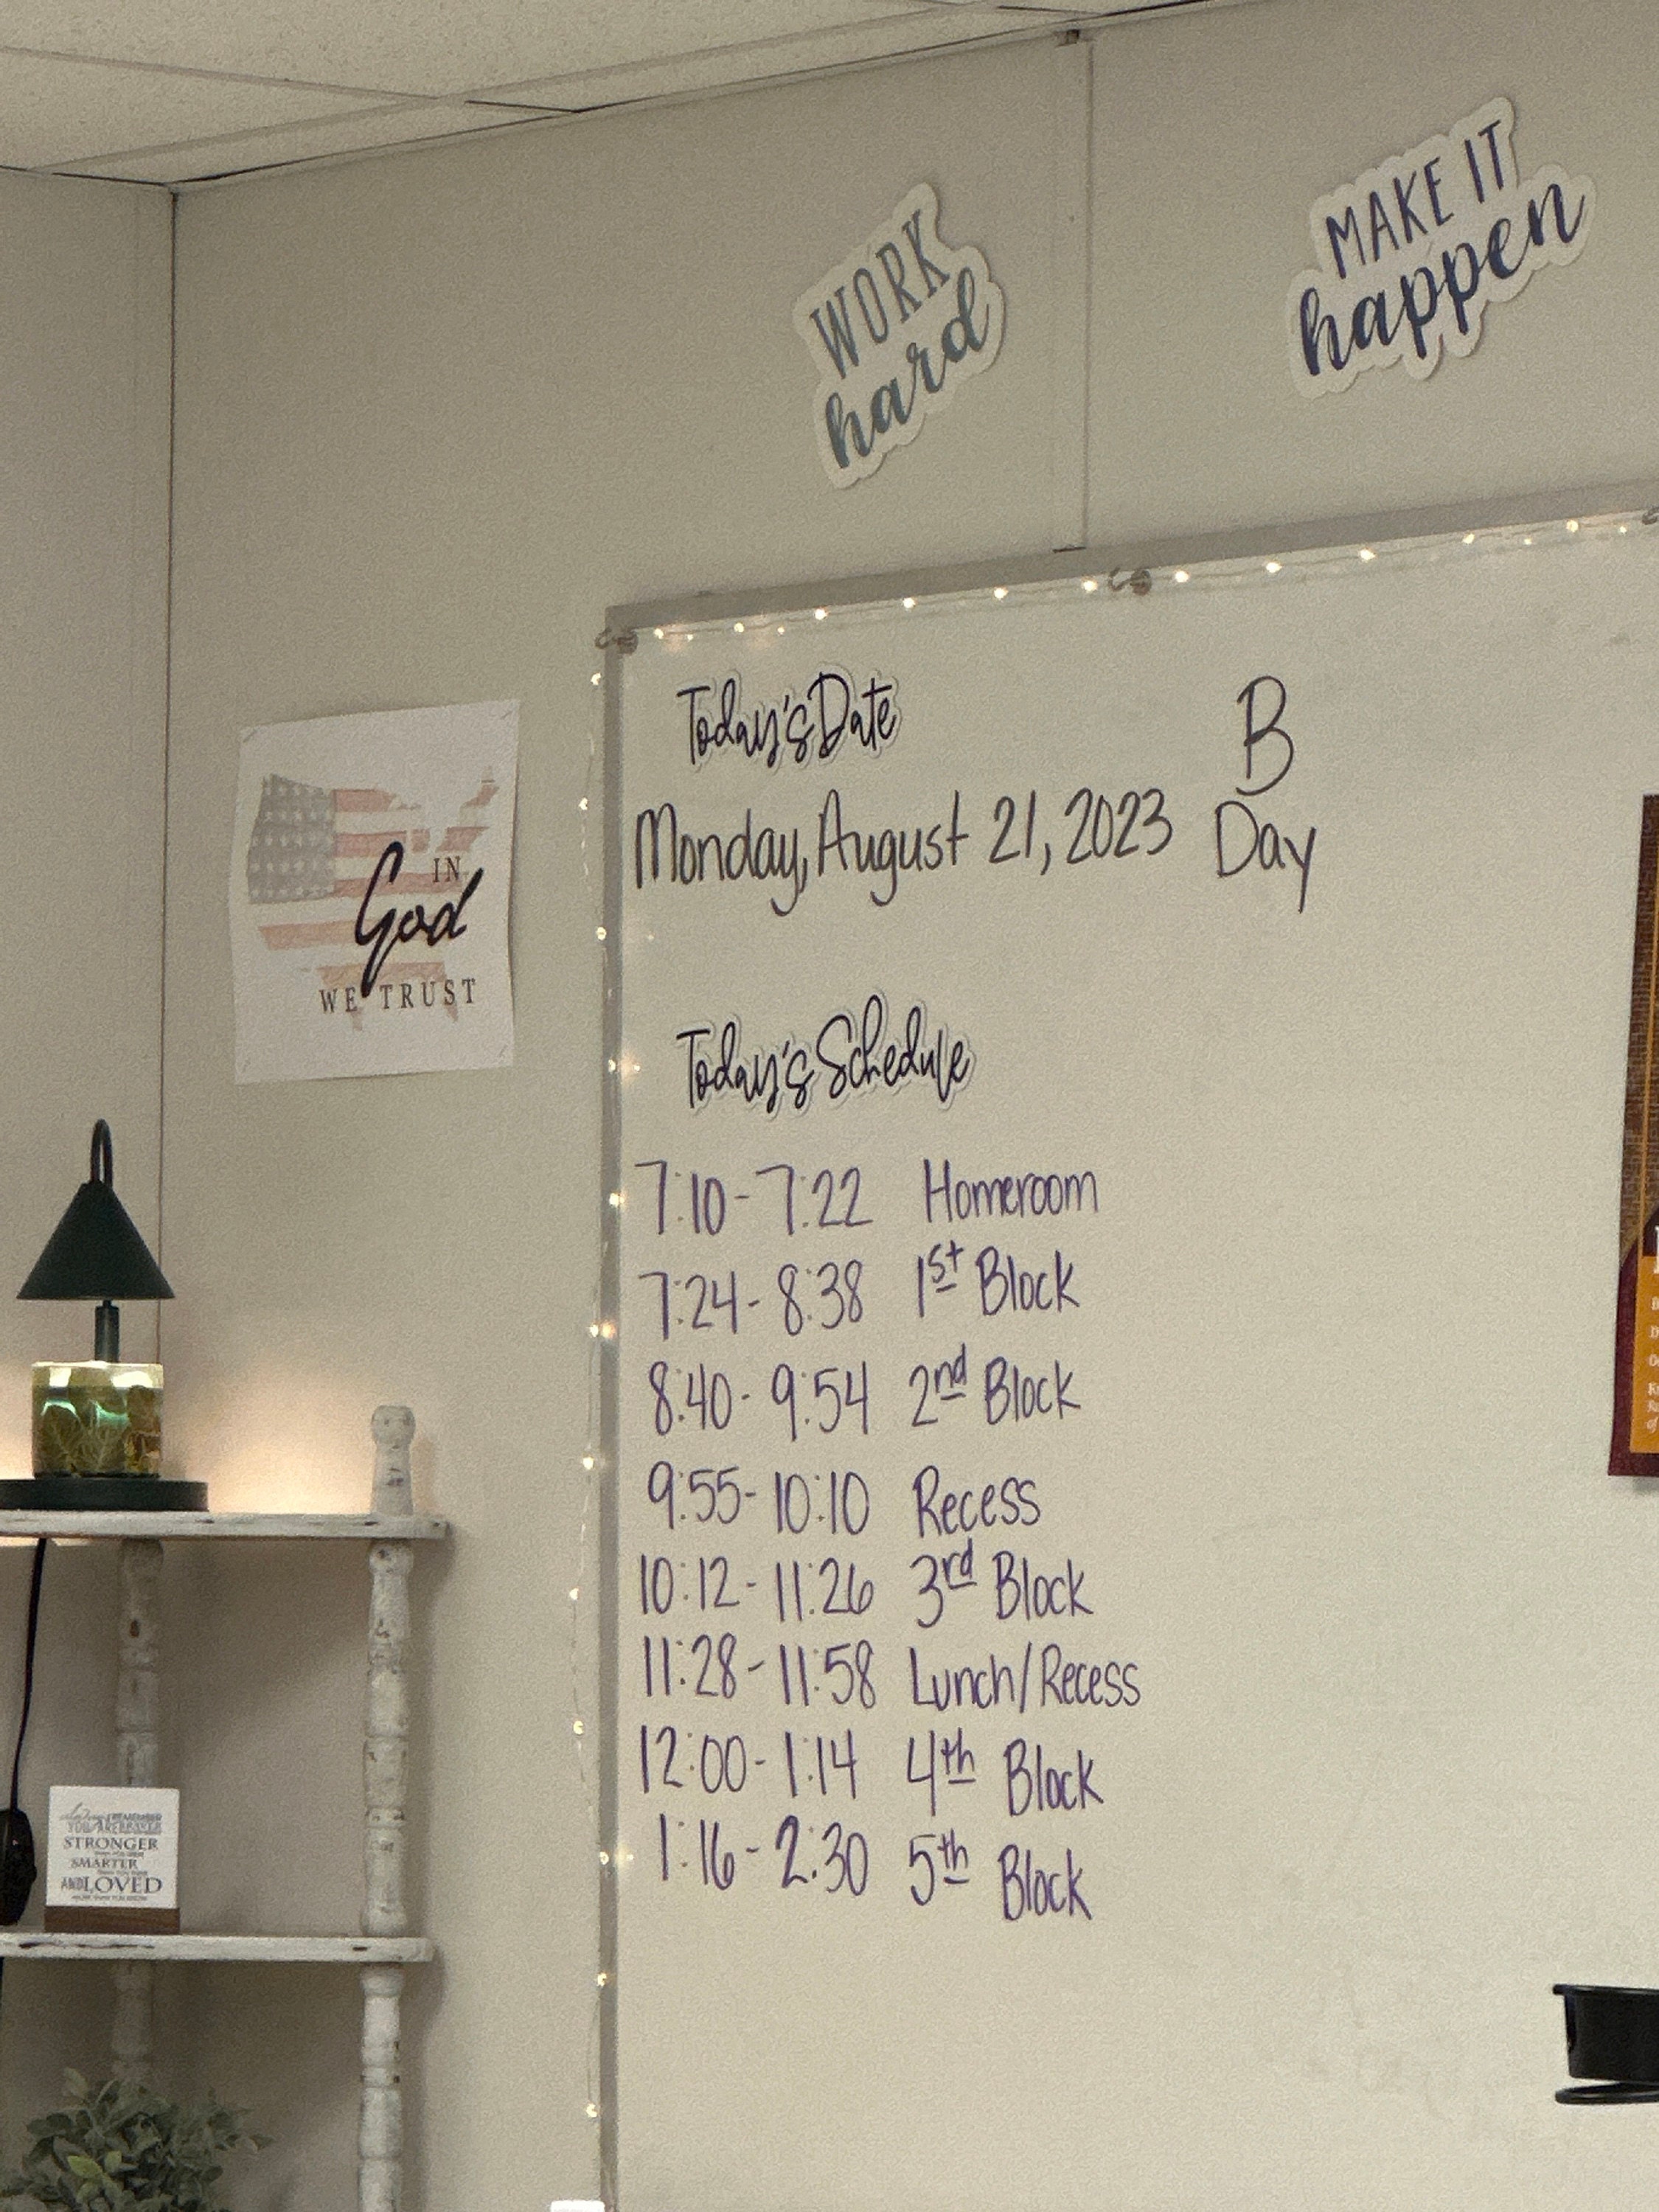 WORK
hard
MAKE IT
happen
Today's Date
B
Monday, August 21, 2023 Day
IN
God
WE TRUST
Today's Schedule
7:10-7:22 Homeroom
7:24-8:38 1st Block
8:40-9:54 2nd Block
9:55-10:10 Recess
10:12-11:26 3rd Block
11:28-11:58 Lunch/Recess
12:00-1:14 4th Block
1:16-2:30 5th Block
REMEMBER
YOU ARE
STRONGER
SMARTER
AND LOVED